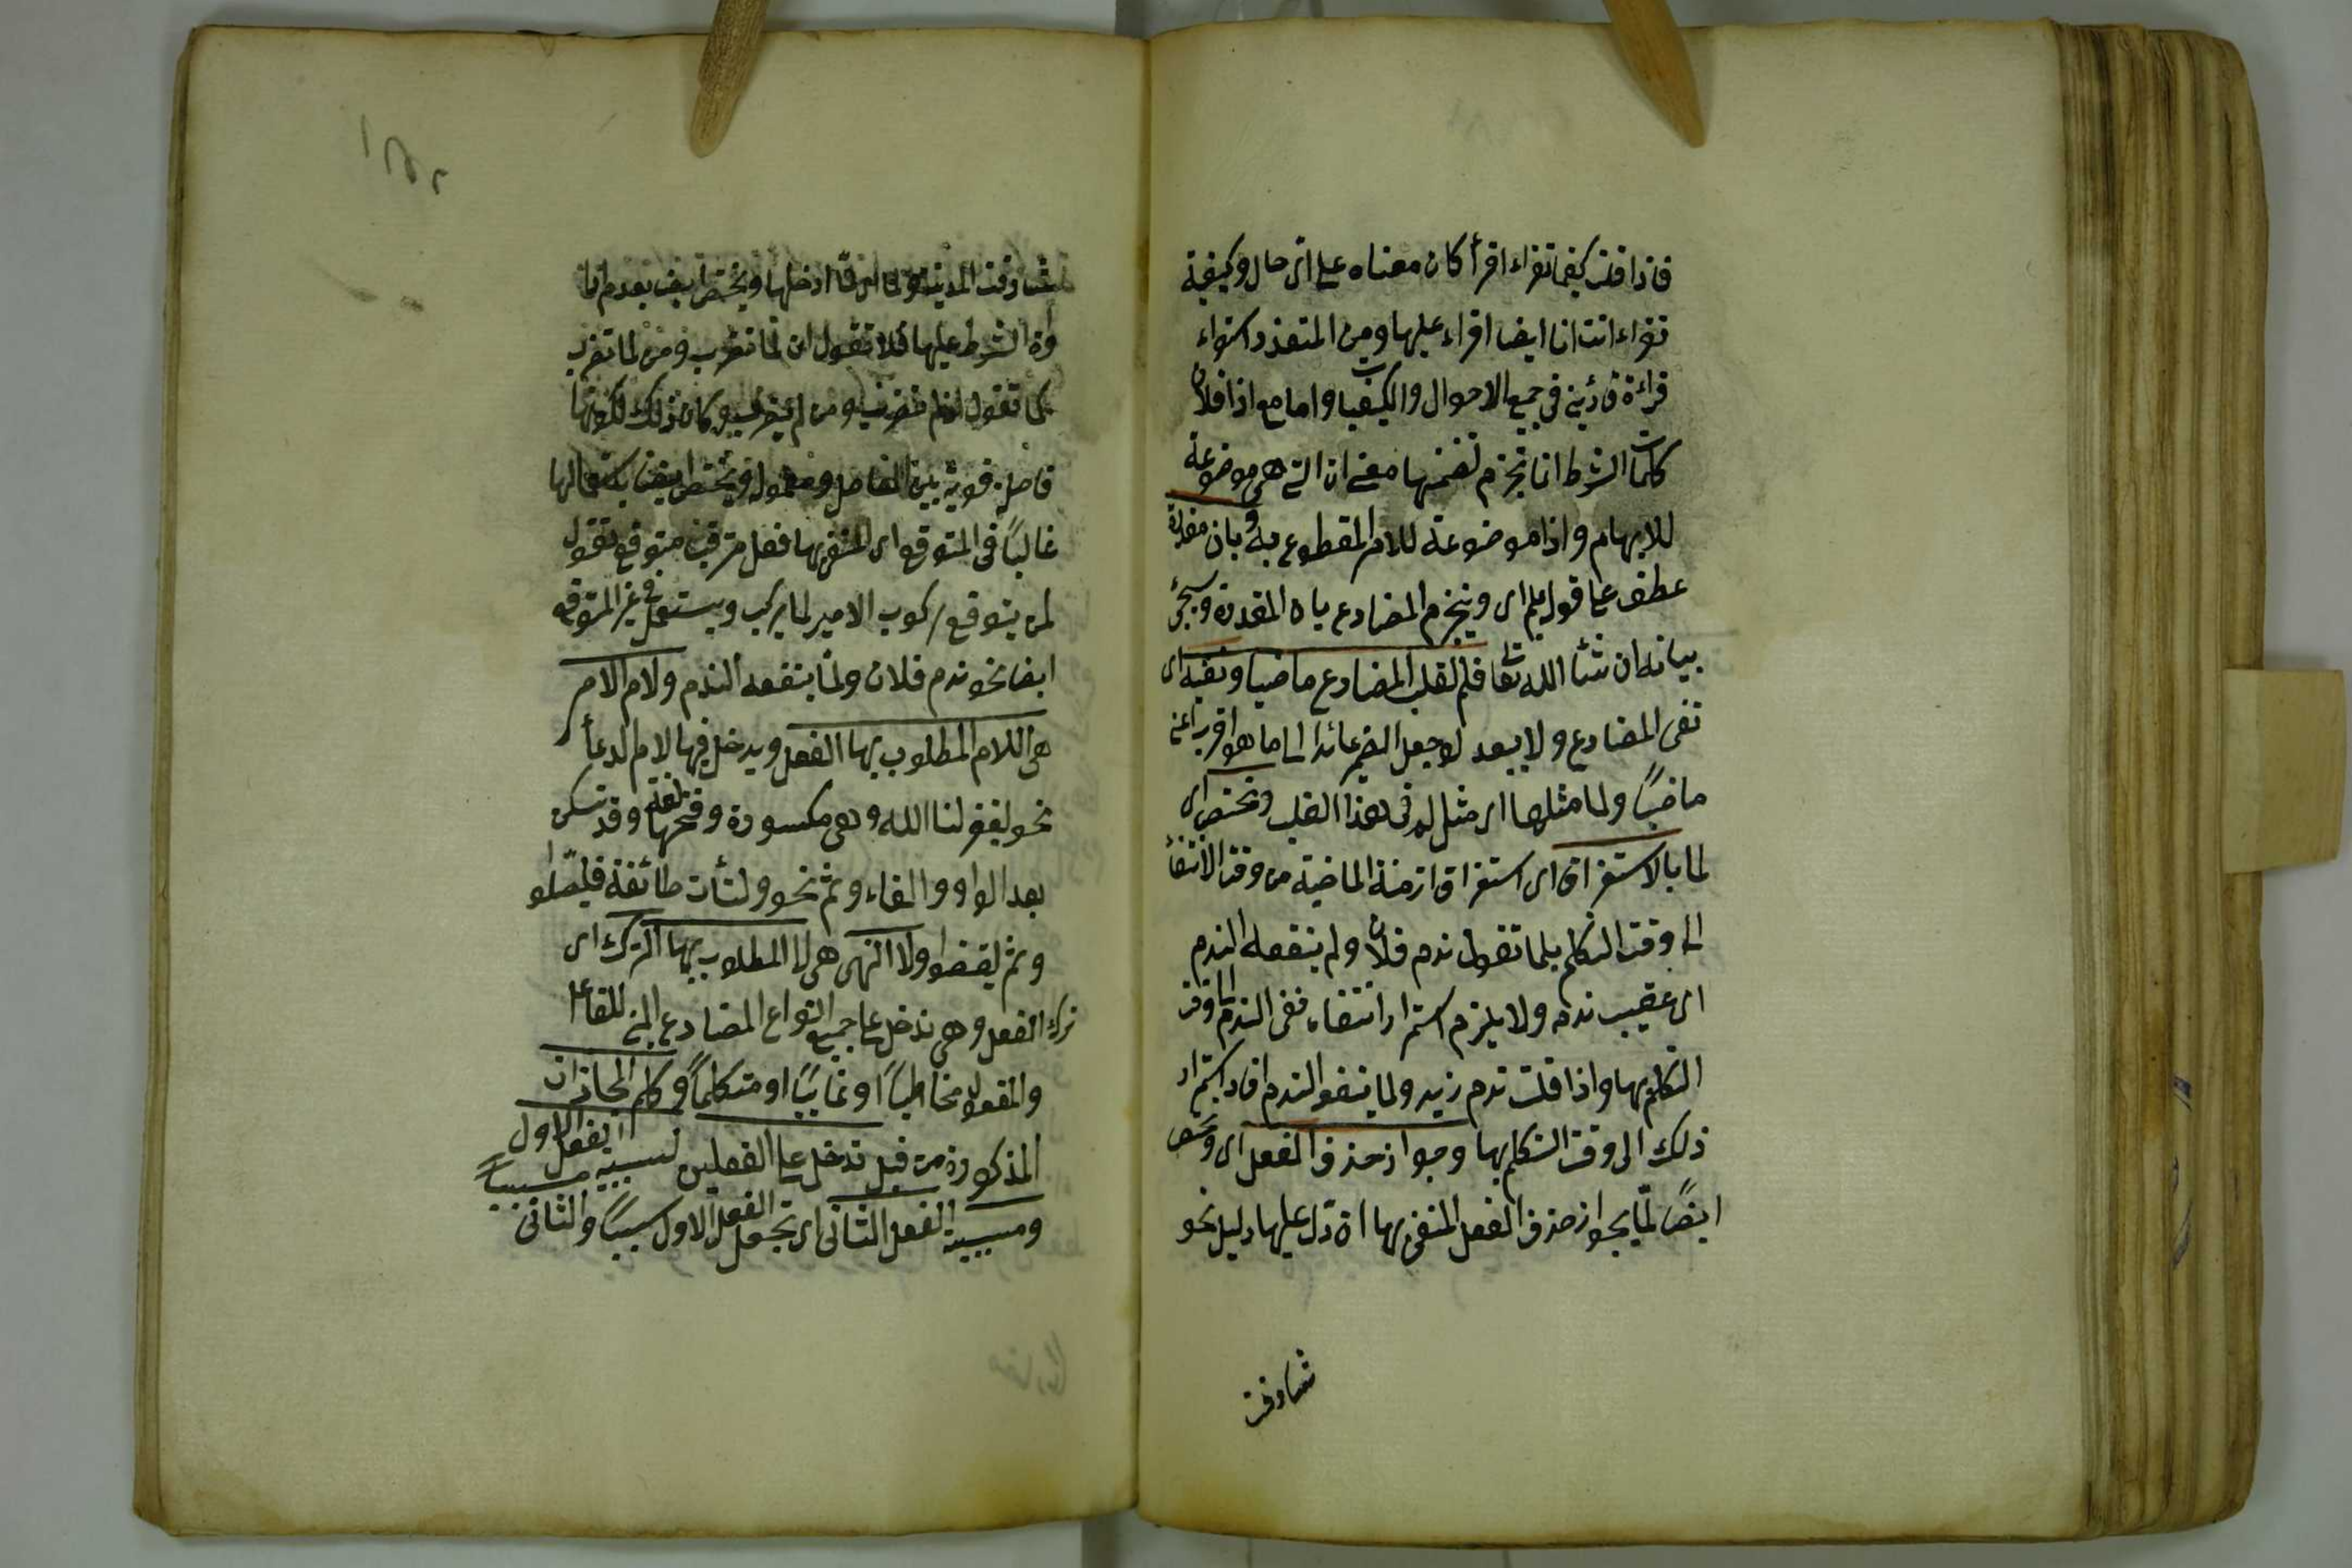 فاذا قلت كيفما تقراء اقرأ كان معناه على اى حال وكيفية
تقراء انت انا ايضا اقراء عليها ومن المتعذر استواء
قراءة قارئين فى جميع الاحوال والكيفيات واما مع اذا فلان
كلمات الشرط انما تجزم لتضمنها معنى ان التى هى موضوعة
للابهام واذا موضوعة للامر المقطوع به وبان مقدرة
عطف على قوله بلم اى وينجزم المضارع بان المقدرة وسيجئ
بيانه ان شاء الله تعا فلم لقلب المضارع ماضيا ونفيه اى
نفى المضارع ولا يبعد لو جعل الضمير عائدا الى ما هو اقرب اعنى
ماضيًا ولما مثلها اى مثل لم فى هذا القلب وتختص اى
لما بالاستغراق اى استغراق ازمنة الماضية من وقت الانتفأ
الى وقت التكلم بلما تقول ندم فلان ولم ينفعه الندم
اى عقيب ندمه ولا يلزم استمرار انتفاء نفى الندم الى وقت
التكلم بها واذا قلت ندم زيد ولما ينفعه الندم افاد استمرار
ذلك الى وقت التكلم بها وجواز حذف الفعل اى وتختص
ايضًا لمّا بجواز حذف الفعل المنفى بها ان دل عليها دليل نحو
شارفت
شارفت المدينة ولما اى لما ادخلها وتختص ايضا بعدم
ادوة الشرط عليها فلا تقول ان لما تضرب ومن لما تضرب
كما تقول ان لم تضرب ومن لم يضرب وكان ذلك لكونها
فاصلة قوية بين العامل ومعموله وتختص ايضا باستعمالها
غالبًا فى المتوقع اى المنفى بها فعل مترقب متوقع تقول
لمن يتوقع ركوب الامير لما يركب ويستعمل فى غير المتوقع
ايضا نحو ندم فلان ولمّا ينفعه الندم ولام الامر
هى اللام المطلوب بها الفعل ويدخل فيها لام الدعأ
نحو ليغفر لنا الله وهى مكسورة وفتحها لغة وقد تسكن
بعد الواو والفاء وثم نحو ولتأت طائفة فليصلّوا
وثم ليقضوا ولا النهى هى لا المطلوب بها الترك اى
ترك الفعل وهى تدخل على جميع انواع المضارع المبنى للفاعل
والمفعول مخاطبًا او غايبًا او متكلمًا وكلم المجازات
المذكورة من قبل تدخل على الفعلين لسببية الفعل الاول
ومسببية الفعل الثانى اى تجعل الفعل الاول سببًا والثانى مسببًا